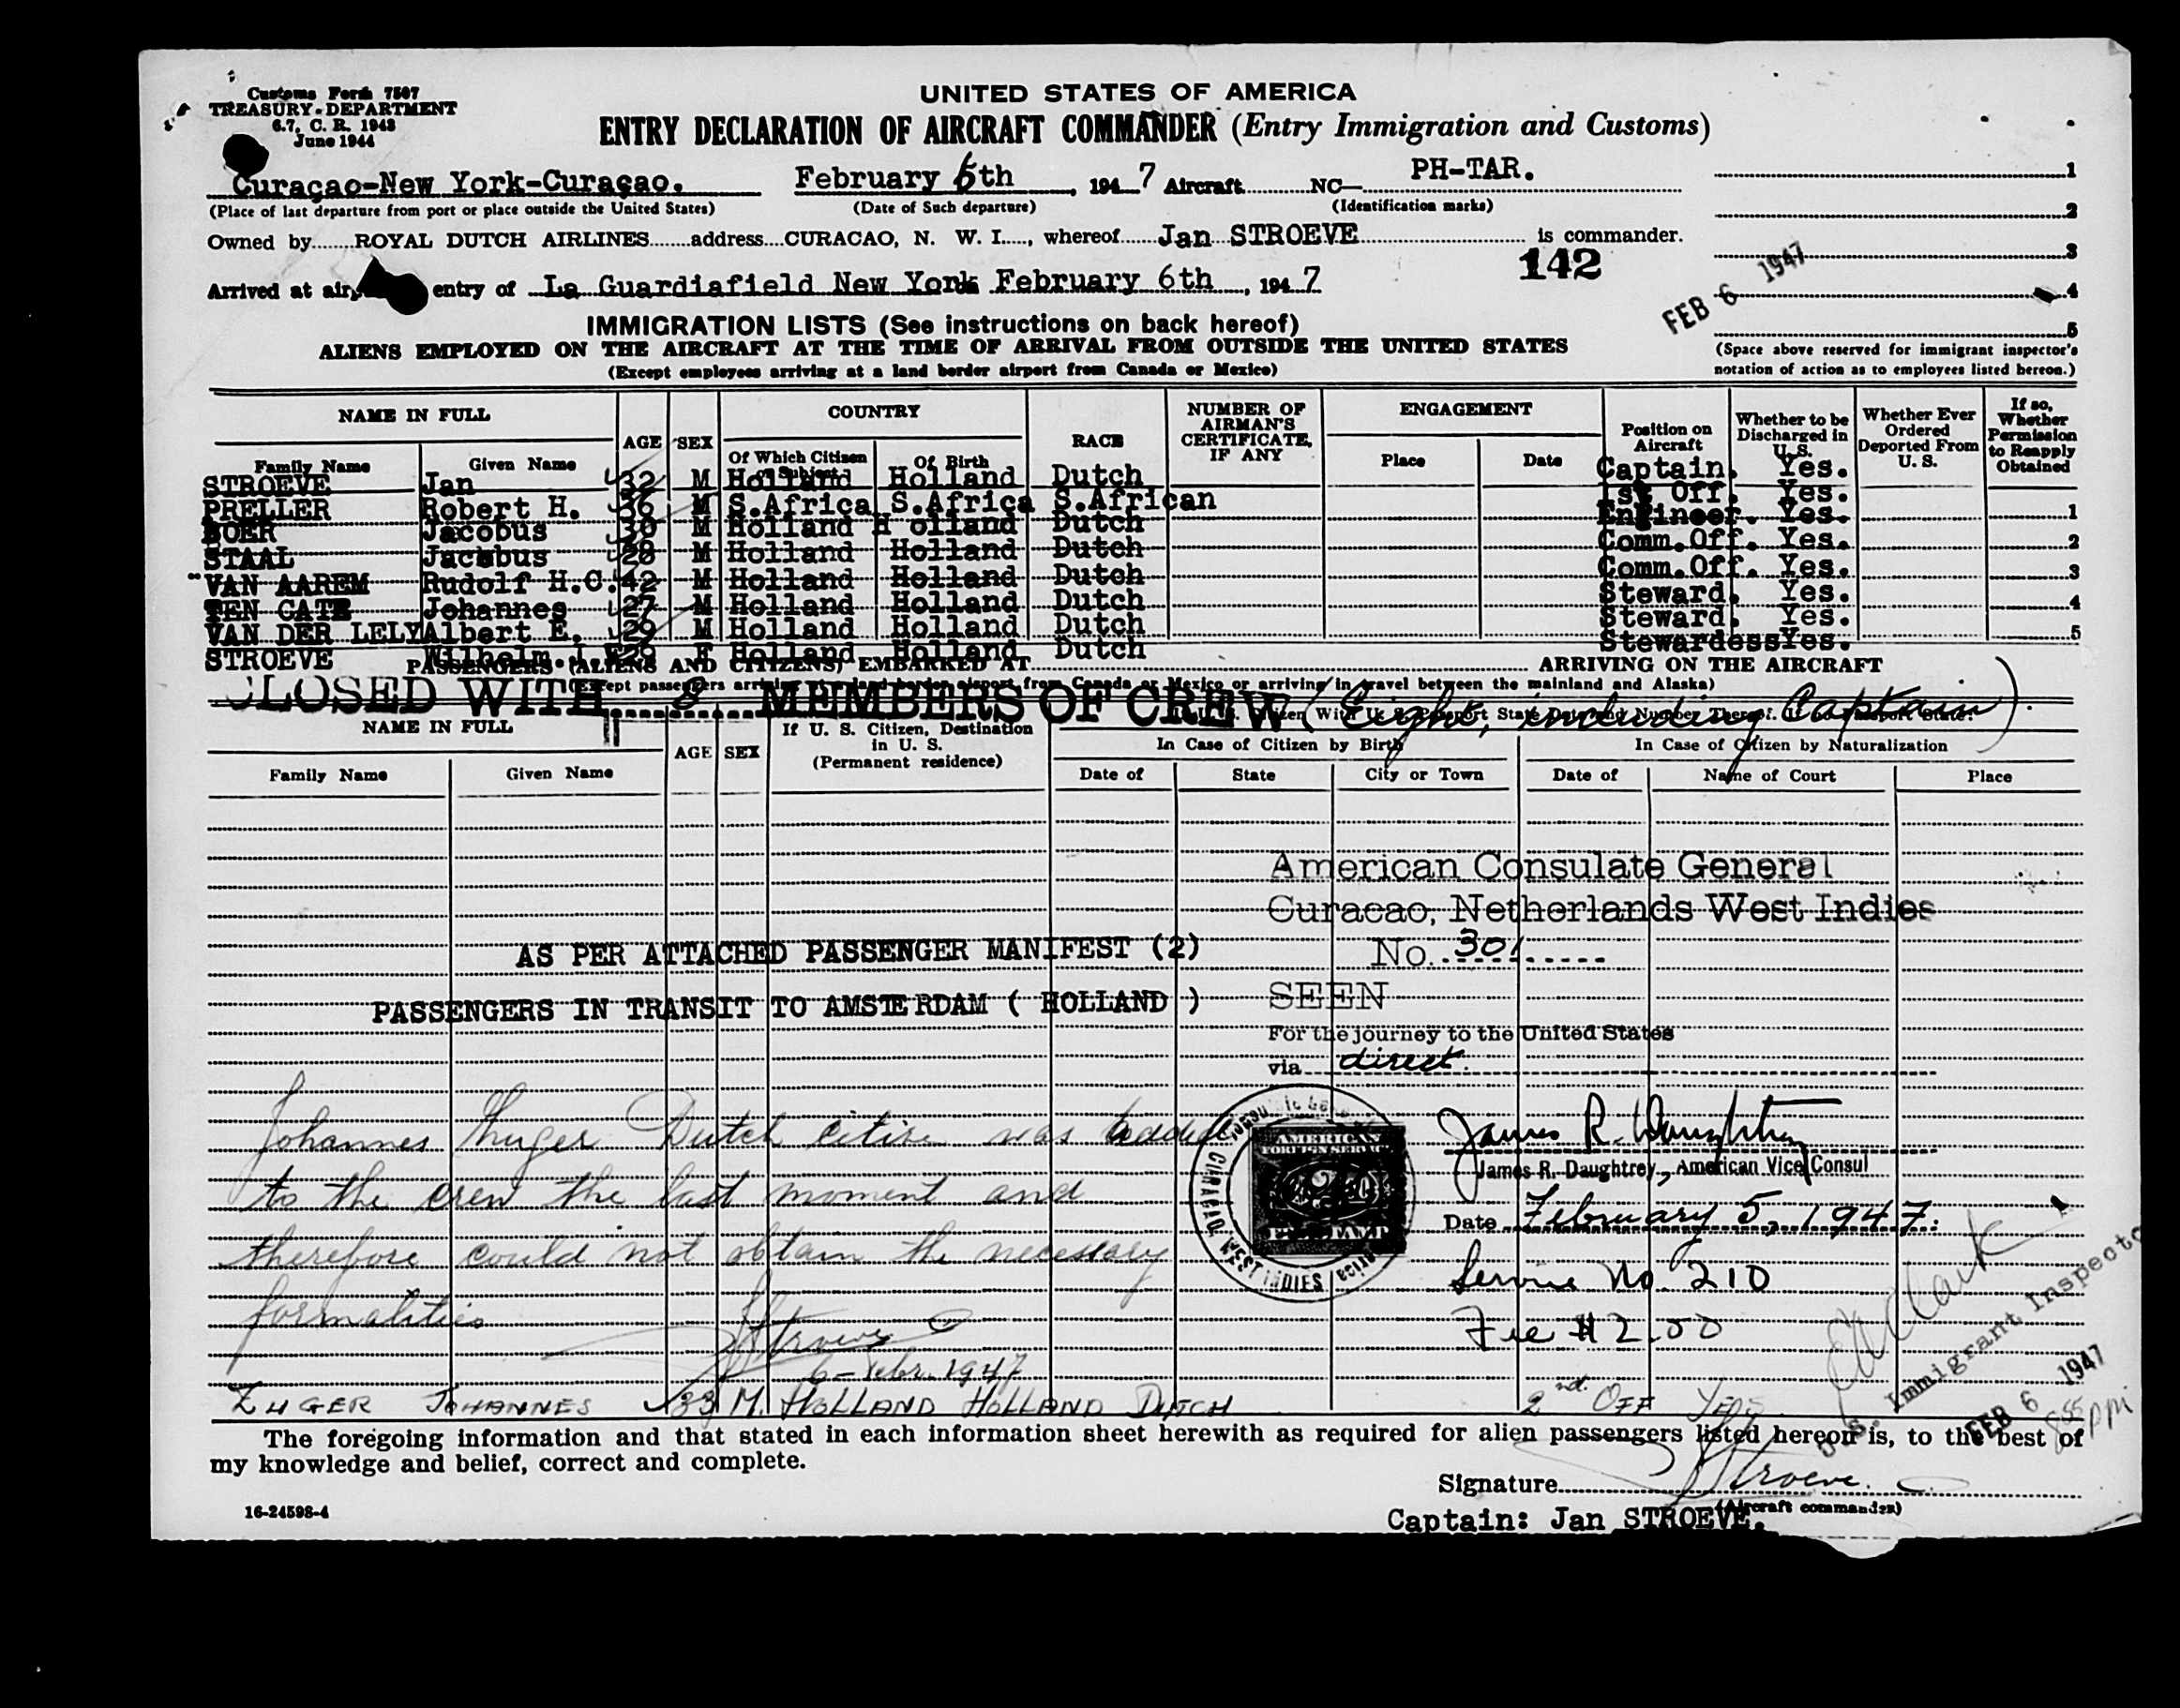 Customs Form 7507
TREASURY DEPARTMENT
6.7, C. R. 1943
June 1944
UNITED STATES OF AMERICA
ENTRY DECLARATION OF AIRCRAFT COMMANDER (Entry Immigration and Customs)
Curaçao-New York-Curaçao. February 6th, 1947 Aircraft NC— PH-TAR. 1
(Place of last departure from port or place outside the United States) (Date of Such departure) (Identification marks)
2
Owned by ROYAL DUTCH AIRLINES address CURACAO, N. W. I., whereof Jan STROEVE is commander.
3
142
FEB 6 1947
Arrived at entry of La Guardiafield New York February 6th, 1947 4
5
IMMIGRATION LISTS (See instructions on back hereof)
ALIENS EMPLOYED ON THE AIRCRAFT AT THE TIME OF ARRIVAL FROM OUTSIDE THE UNITED STATES
(Except employees arriving at a land border airport from Canada or Mexico)
(Space above reserved for immigrant inspector's
notation of action as to employees listed hereon.)
NAME IN FULL AGE SEX COUNTRY RACE NUMBER OF AIRMAN'S CERTIFICATE, IF ANY ENGAGEMENT Position on Aircraft Whether to be Discharged in U. S. Whether Ever Ordered Deported From U. S. If so, Whether Permission to Reapply Obtained
Family Name Given Name Of Which Citizen or Subject Of Birth Place Date
STROEVE Jan 32 M Holland Holland Dutch Captain. Yes.
PRELLER Robert H. 36 M S.Africa S.Africa S.African 1st Off. Yes.
BOER Jacobus 30 M Holland H olland Dutch Engineer. Yes. 1
STAAL Jacobus 28 M Holland Holland Dutch Comm.Off. Yes. 2
VAN AAREM Rudolf H.C. 42 M Holland Holland Dutch Comm.Off. Yes. 3
TEN CATE Johannes 27 M Holland Holland Dutch Steward. Yes. 4
VAN DER LELY Albert E. 29 M Holland Holland Dutch Steward. Yes. 5
STROEVE 29 F Holland Holland Dutch Stewardess Yes.
PASSENGERS (ALIENS AND CITIZENS) EMBARKED AT ARRIVING ON THE AIRCRAFT
(Except passengers arriving at a land border airport from Canada or Mexico or arriving in travel between the mainland and Alaska)
CLOSED WITH 8 MEMBERS OF CREW (Eight, including Captain).
NAME IN FULL AGE SEX If U. S. Citizen, Destination in U. S. (Permanent residence)
In Case of Citizen by Birth In Case of Citizen by Naturalization
Family Name Given Name Date of State City or Town Date of Name of Court Place
American Consulate General
Curacao, Netherlands West Indies
AS PER ATTACHED PASSENGER MANIFEST (2)
No. 301
PASSENGERS IN TRANSIT TO AMSTERDAM ( HOLLAND )
SEEN
For the journey to the United States
via direct.
Johannes Zuger Dutch citizen was added
to the crew the last moment and
therefore could not obtain the necessary
formalities
JStroeve
6-Febr. 1947
AMERICAN
FOREIGN SERVICE
2
WEST INDIES
James R. Daughtrey
James R. Daughtrey, American Vice Consul
Date February 5, 1947.
Service No. 210
Fee $2.00
U.S. Immigrant Inspector
FEB 6 1947
855 pm
ZUGER JOHANNES 33 M. HOLLAND HOLLAND DUTCH 2nd. OFF YES
The foregoing information and that stated in each information sheet herewith as required for alien passengers listed hereon is, to the best of
my knowledge and belief, correct and complete.
Signature JStroeve.
(Aircraft commander)
16-24598-4
Captain: Jan STROEVE.